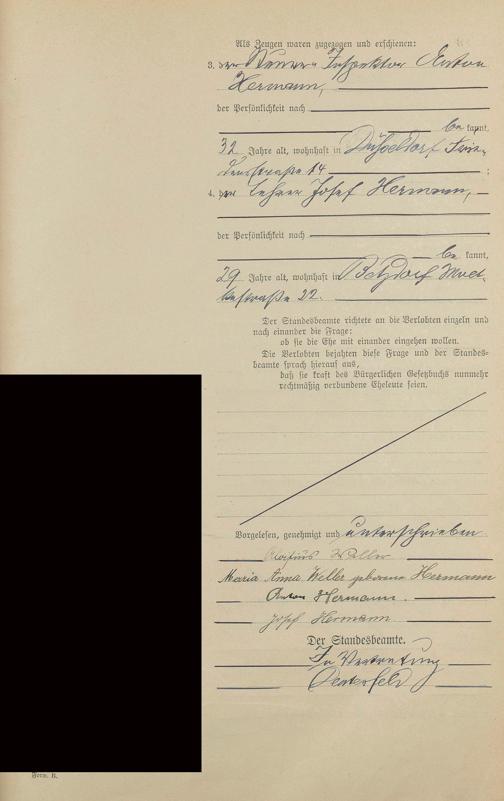 Als Zeugen waren zugezogen und erschienen:
3. der Steuer-Inspektor Anton
Hermann,
der Persönlichkeit nach
be kannt,
32 Jahre alt, wohnhaft in Düsseldorf
straße 14 ;
4. der Lehrer Josef Hermann,
der Persönlichkeit nach
be kannt,
29 Jahre alt, wohnhaft in Betzdorf Molt-
kestraße 22.
Der Standesbeamte richtete an die Verlobten einzeln und
nach einander die Frage:
ob sie die Ehe mit einander eingehen wollen.
Die Verlobten bejahten diese Frage und der Standes-
beamte sprach hierauf aus,
daß sie kraft des Bürgerlichen Gesetzbuchs nunmehr
rechtmäßig verbundene Eheleute seien.
Vorgelesen, genehmigt und unterschrieben
Aloisius Weller
Maria Anna Weller geborene Hermann
Anton Hermann.
Josef Hermann
Der Standesbeamte.
In Vertretung
Form. B.